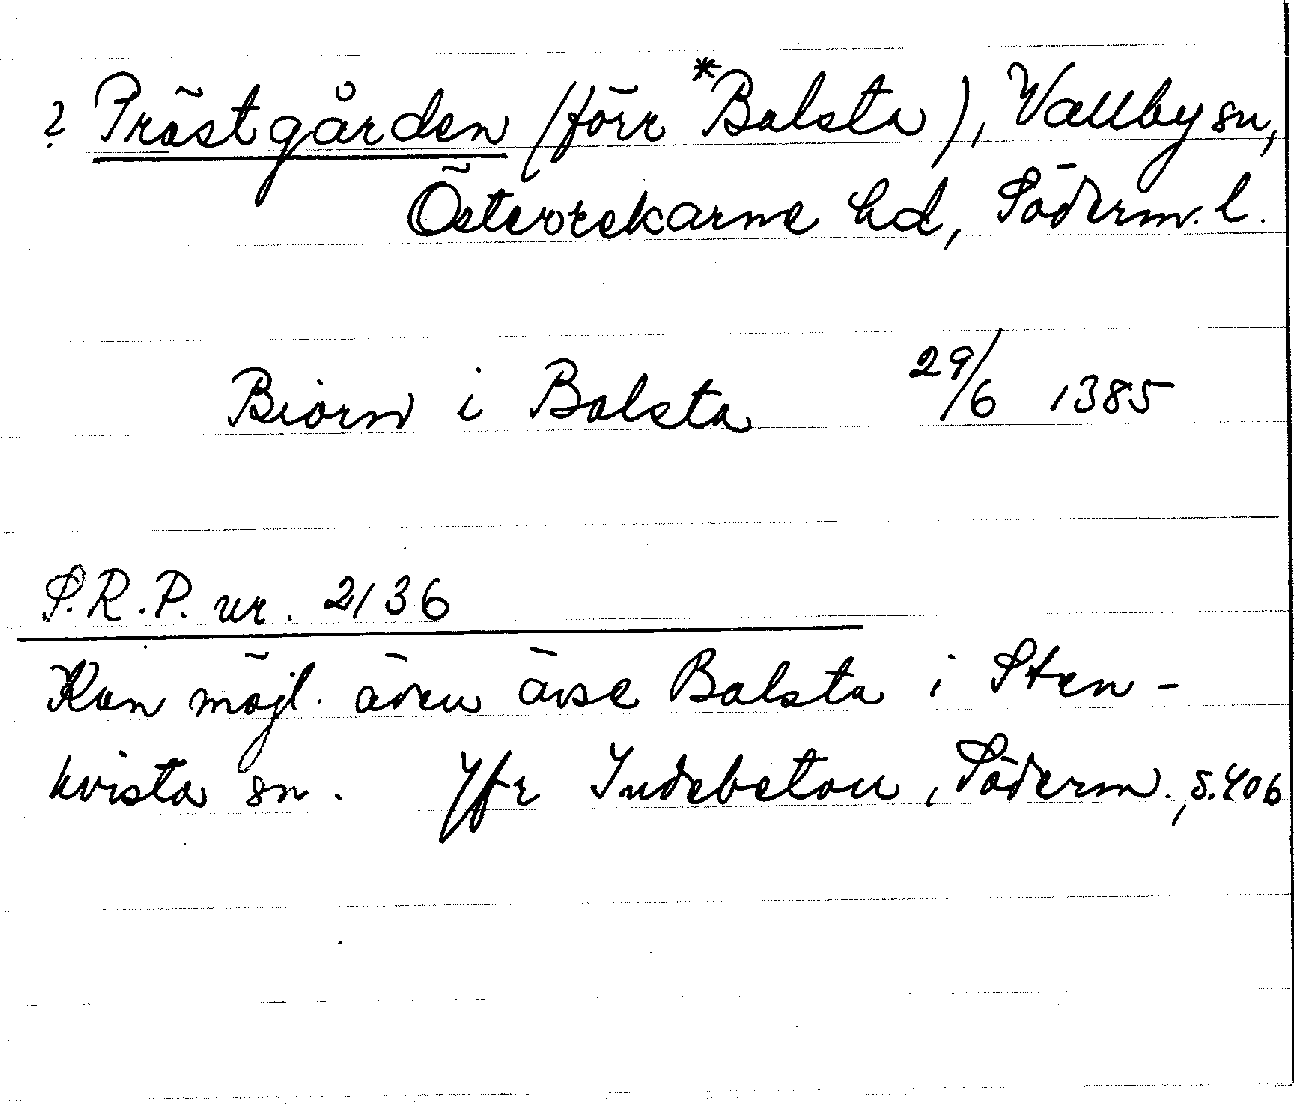 ? Prästgården (förr *Balsta), Vallby sn,
Österrekarne hd, Söderm. l.
Biorn i Balsta 29/6 1385
S.R.P. nr. 2136
Kan möjl. även avse Balsta i Sten-
kvista sn. Jfr Indebetou, Söderm., s. 406